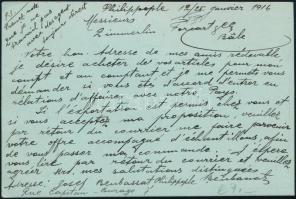 Philippople 12/25 janvier 1916
Messieurs
Simmerlin
Bâle
Votre bon Adresse de mes amis redevable,
je désire acheter de vos articles pour mon
compt et au comptant et je me permets vous
demander si vous êtes d'accord d'entrer en
relations d'affaires, avec notre Pays.
Si l'exportation est permis, chez vous et
si vous acceptez ma proposition, veuillez
par retour du courrier me faire parvenir
votre offre accompagné d'échantillons, afin
de vous passer ma commande. J'espère
vous lire par retour du courrier et veuillez
agréer Mrs, mes salutations distinguées
Adresse, Josef Benbassat Philippople
Rue Capitan Burago